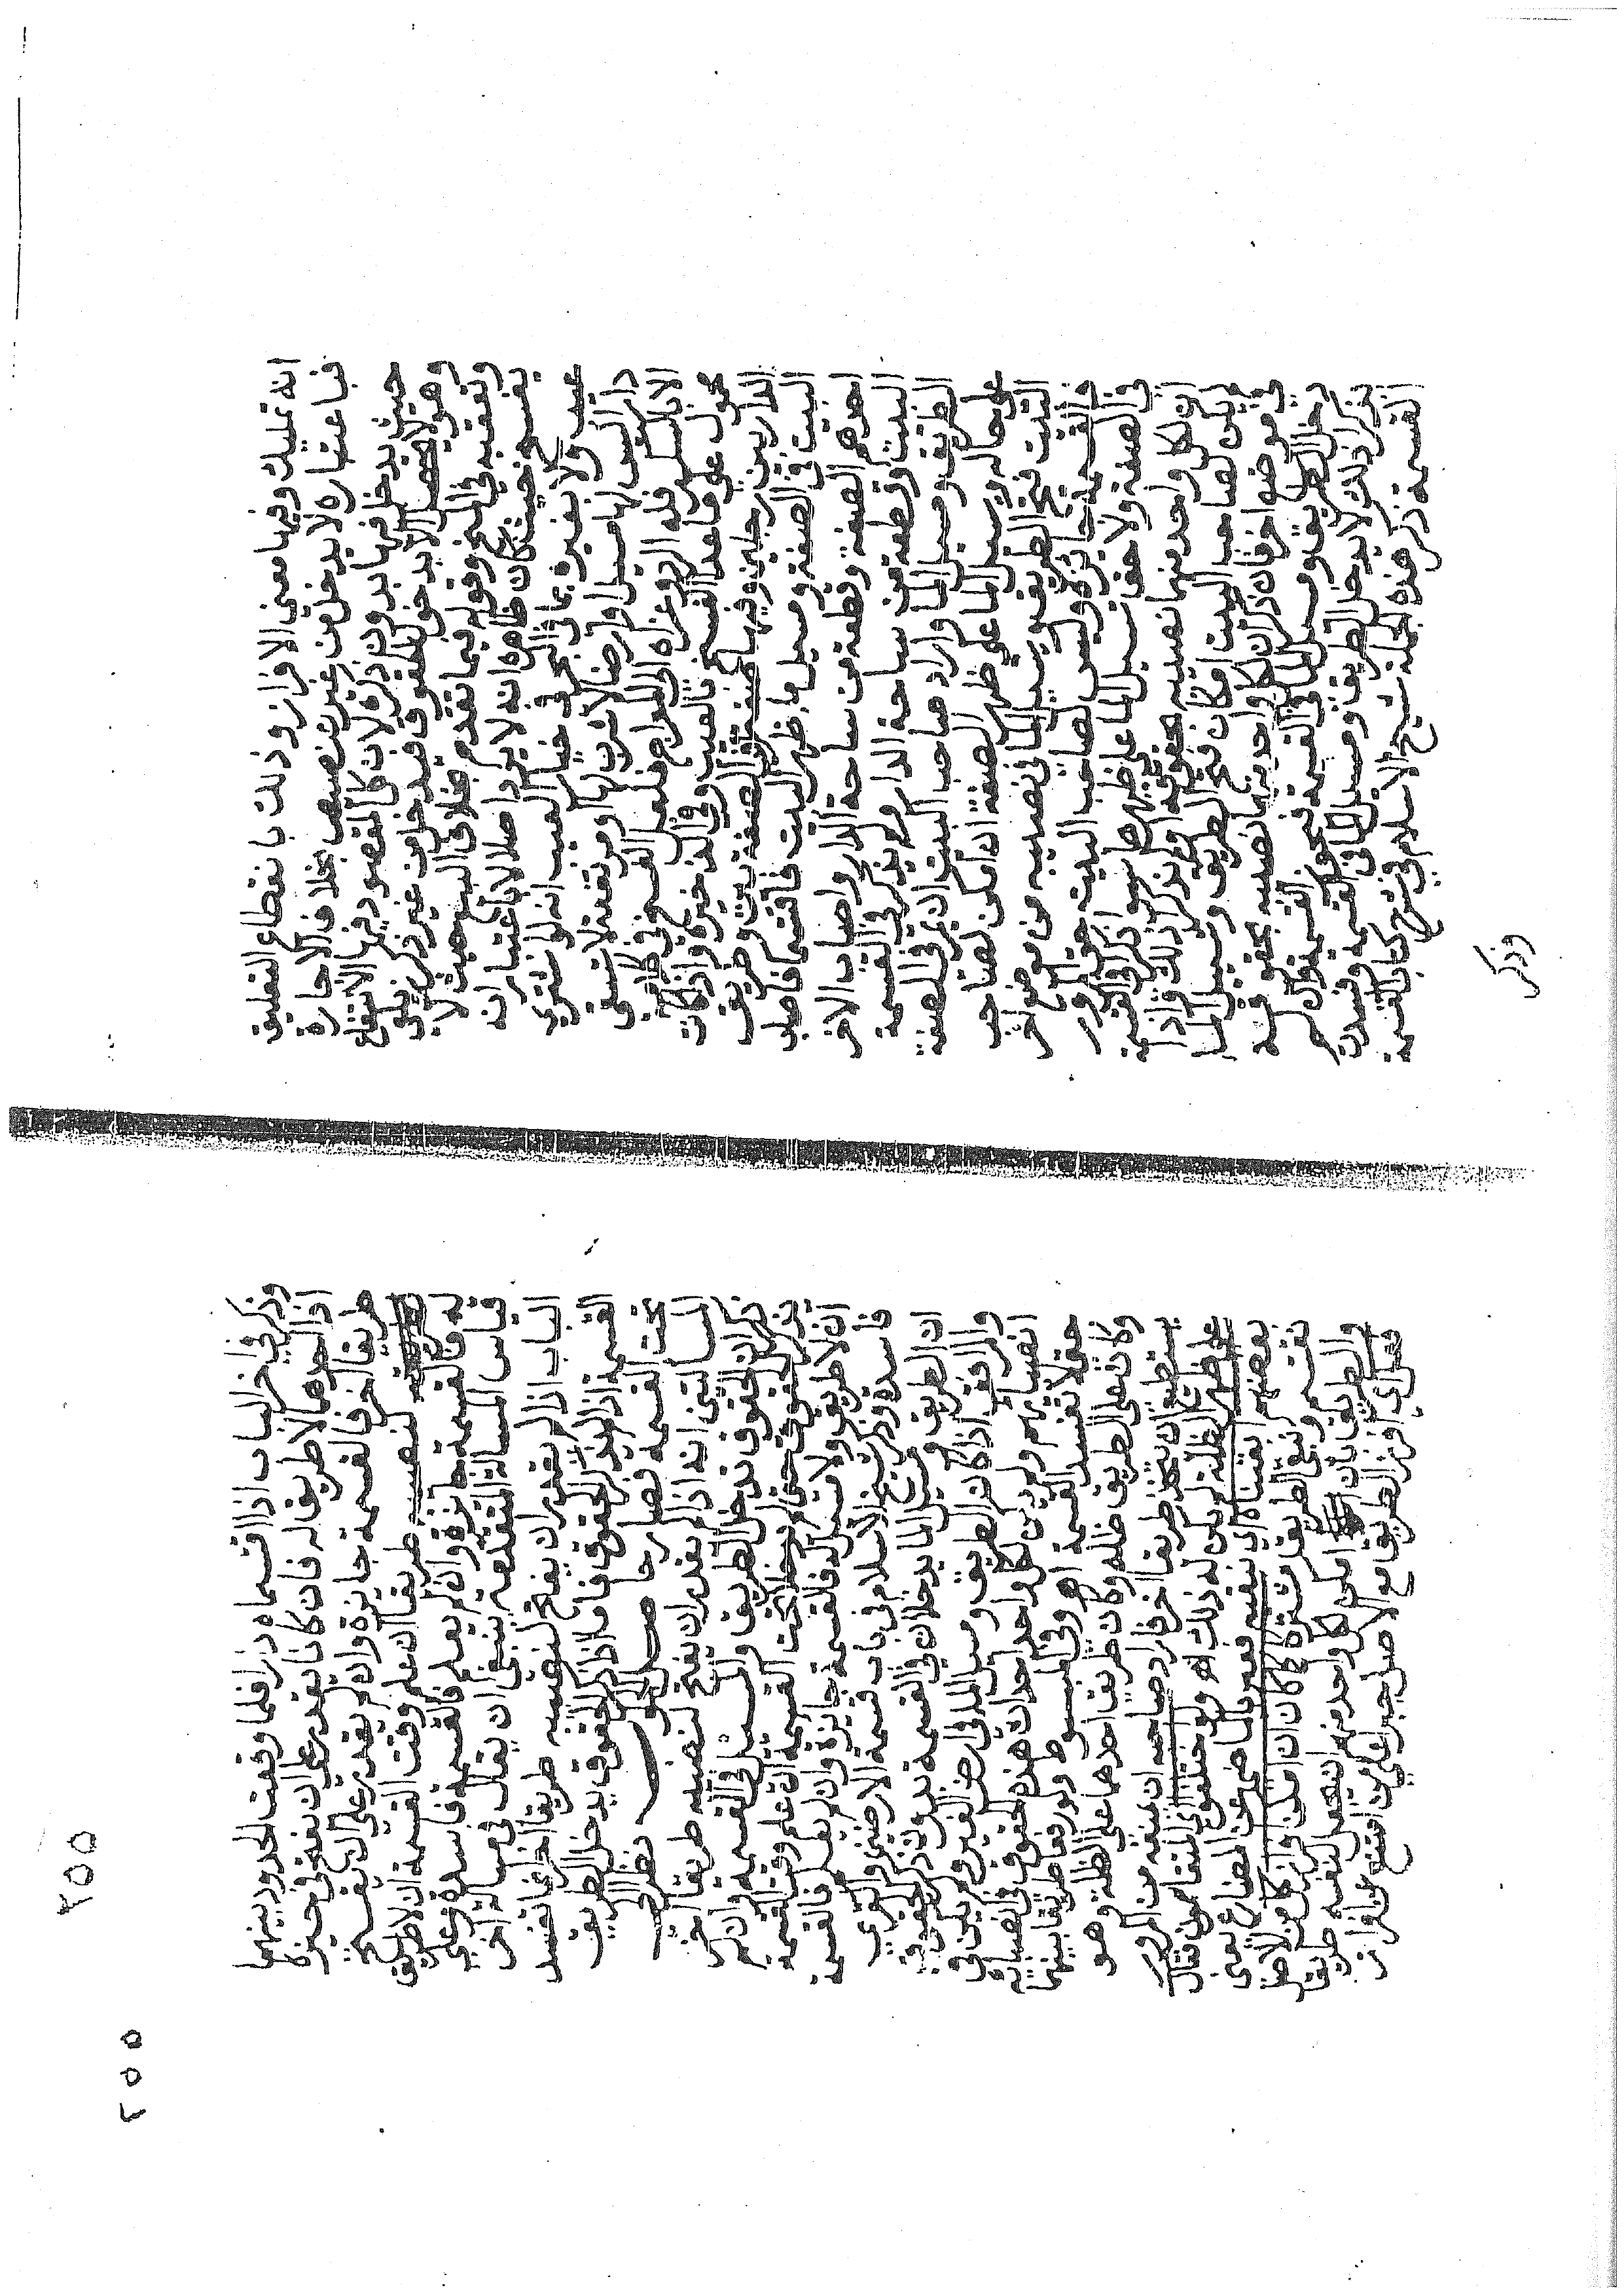 انه تمليك وفيها معنى الافراز وذلك بانقطاع التعليق
فباعتباره لا يدخل من غير تنصيص بخلاف الاجارة
حيث يدخل فيها بدون ذكره لان كل المقصود فيها الانتفاع
وهو لا يحصل الا بدخول الحقوق فيدخل من غير ذكر
وتعقبه في البحر وقوله فيما تقدم بخلاف البيع حيث لا
يفسد فحيث كان ظاهره انه لا يرد اصلا الا باعتبار انه
عيب ولا بغيره بما في البحر في خيار العيب انه لو اشترى
دارا ليس لها مسيل او ارضا لا شرب لها ومن لا تسقى
الا بالسكر فله الرد وعزاه الى المعراج فلعل القسمة في
محمول على ما عدا بالعيب وفي الذخيرة واذا كانت
الدار بين رجلين وفيها صفة في الصفة بيت وطريق
البيت في الصفة ومسيل ماء ظهر البيت فاقتسما فاصاب
احدهم الصفة وقطعة من ساحة الدار واصاب الاخر
البيت وقطعة من ساحة الدار ولم يذكروا في القسمة
الطريق ومسيل الما واراد صاحب البيت ان يمر في الصفة
على حاله ويسيل الما على ظهر الصفة اذا امكن لصاحب
البيت فتح الطريق وتسييل الما في نصيبه من موضع اخر
فالقسمة جايزة وليس لصاحب البيت حق المرور
في الصفة ولا حق تسييل الما على ظهرها سوا ذكروا في القسمة
ان لكل واحد منهما نصيبه بحقوقه او لم يذكروا ذلك واذا
لم يكن لصاحب البيت امكان فتح الطريق وتسييل الما
في موضع اخر فان ذكر ان لكل واحد منهما نصيبه بحقوقه
دخل الطريق ومسيل الما في القسمة فتجوز القسمة وان لم
يذكر ذلك لا يدخل الطريق ومسيل الما في القسمة وفسدت
القسمة ذكر هذه الجملة شيخ الاسلام في شرح كتاب القسمة
وذكر
وذكر في اخر الباب اذا اقتسما دارا فلما وقعت الحدود بينهما
اذا احدهما لا طريق له فان كان يقدر على ان يفتح في حيزه
طريقا اخر فالقسمة جايزة وان لم يقدر على ان يفتح
لنصيبه طريقا ان علم وقت القسمة ان لا طريق
له فالقسمة جايزة وان لم يعلم فالقسمة فاسدة وعلى
قياس المسالة المتقدمة ينبغي ان يقال في مسالة اخر
الباب اذا لم يقدر ان يفتح لنصيبه طريقا اخر انما تفسد
القسمة اذا لم يذكر الحقوق فاما اذا ذكر الحقوق يدخل الطريق
تحت القسمة فصار حاصل الجواب نظرا الى
المسالتين انه اذا لم يقدر ان يفتح لنصيبه طريقا اخر
ذكر ان الحقوق تدخل الطريق والمسيل في القسمة وان لم
يذكر الحقوق حتى لم يدخلا تحت القسمة ان علم وقت القسمة
ان لا طريق ولا مسيل له فالقسمة جايزة وان لم يعلم فالقسمة
فاسدة وذكر شيخ الاسلام في باب قسمة الارضين والقرى
ان الطريق ومسيل الما يدخلان في القسمة بدون ذكر الحقوق
والمرافق اذا كان الطريق ومسيل الما في ارض الغير ولم يكن في
انصبائهم ولم يكن لكل واحد احداث هذه الحقوق في انصبائه
حتى لا تفسد القسمة اه وفي المبسوط ولو رفعا طريقا بينهما
وكان على الطريق ظلة وكان طريق احدهما على الظلة وهو
يستطيع ان يتخذ طريقا اخر فاراد صاحبه ان يمنعه من المرور
على ظهر الظلة لم يكن له ذلك اه ولو اختلفوا فقال
بعضهم ابقيناه اي نبقيه فعبر بالماضي عن المضارع يعني
نقتسم ونبقي الطريق مشتركا كما كان ان امكن افراز كل من الاخر
والطريق بان امكن لكل واحد منهم ان يجعل لنفسه طريقا
فعل اي افرز الطريق مع الاصل جبرا على من امتنع عن افراز
٢٥٥
٢٥٥